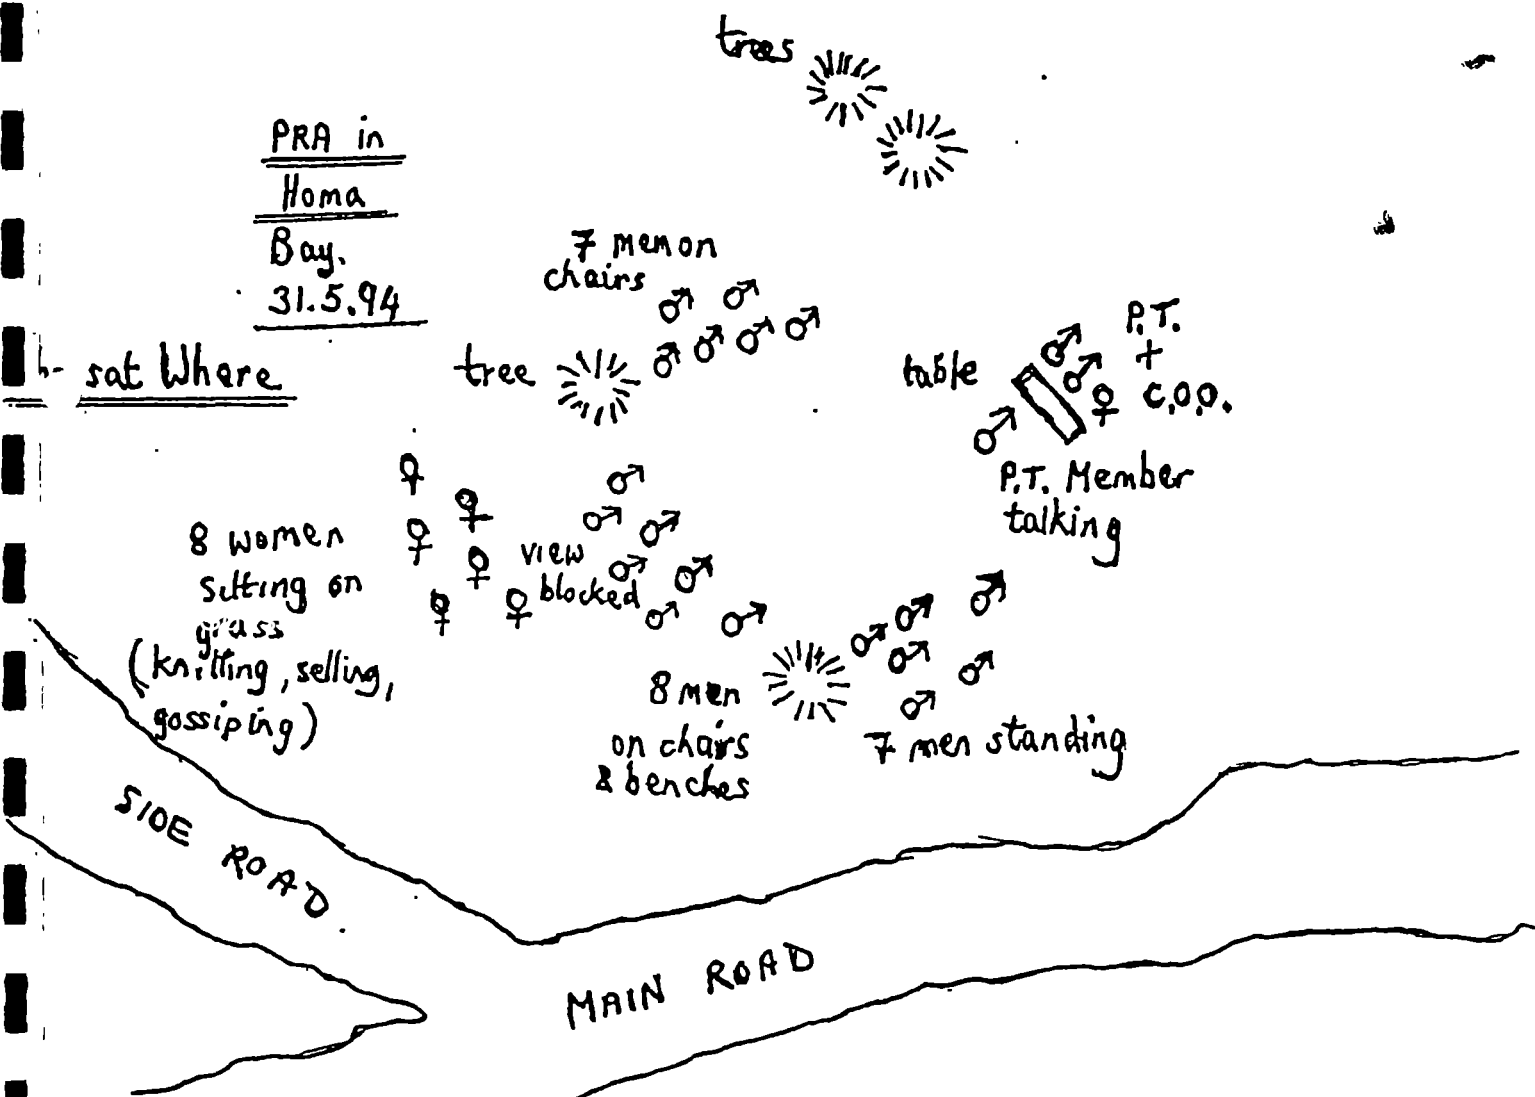 trees
PRA in
Homa
Bay.
31.5.94
sat Where
7 men on
chairs
tree
table
P.T.
+
C.O.O.
P.T. Member
talking
8 women
sitting on
grass
(knitting, selling,
gossiping)
view
blocked
8 men
on chairs
& benches
7 men standing
SIDE ROAD
MAIN ROAD